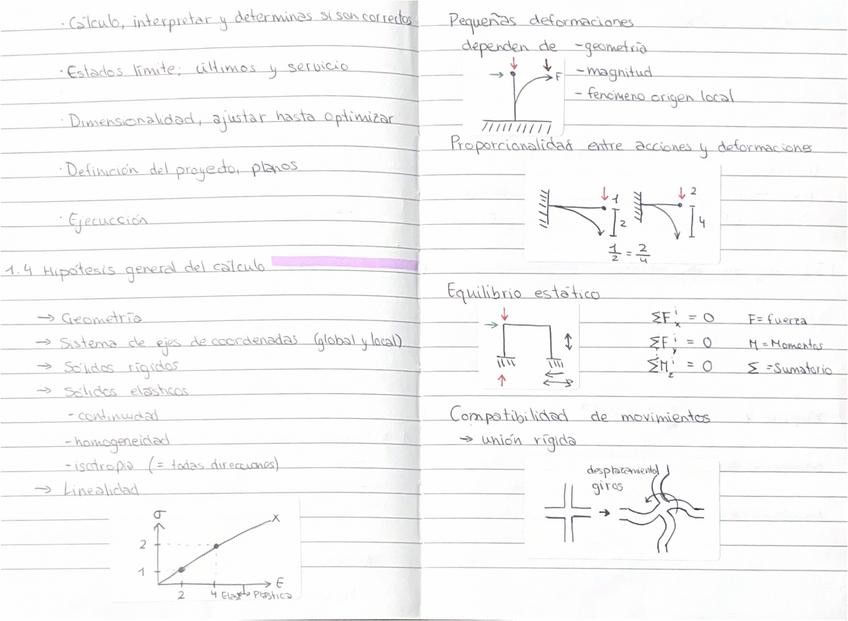 · Cálculo, interpretar y determinas si son correctos
· Estados límite; últimos y servicio
· Dimensionalidad, ajustar hasta optimizar
· Definición del proyecto, planos
· Ejecucción
1.4 Hipótesis general del cálculo
→ Geometría
→ Sistema de ejes de coordenadas (global y local)
→ Sólidos rígidos
→ Sólidos elásticos
- continuidad
- homogeneidad
- isotropia (= todas direcciones)
→ Linealidad
σ
x
2
1
2 4 Plástica
E
Pequeñas deformaciones
dependen de - geometría
- magnitud
- fenómeno origen local
F
Proporcionalidad entre acciones y deformaciones
1 2
2 4
1/2 = 2/4
Equilibrio estático
ΣFxⁱ = 0 F = fuerza
ΣFyⁱ = 0 M = Momentos
ΣMzⁱ = 0 Σ = Sumatorio
Compatibilidad de movimientos
→ unión rígida
giros